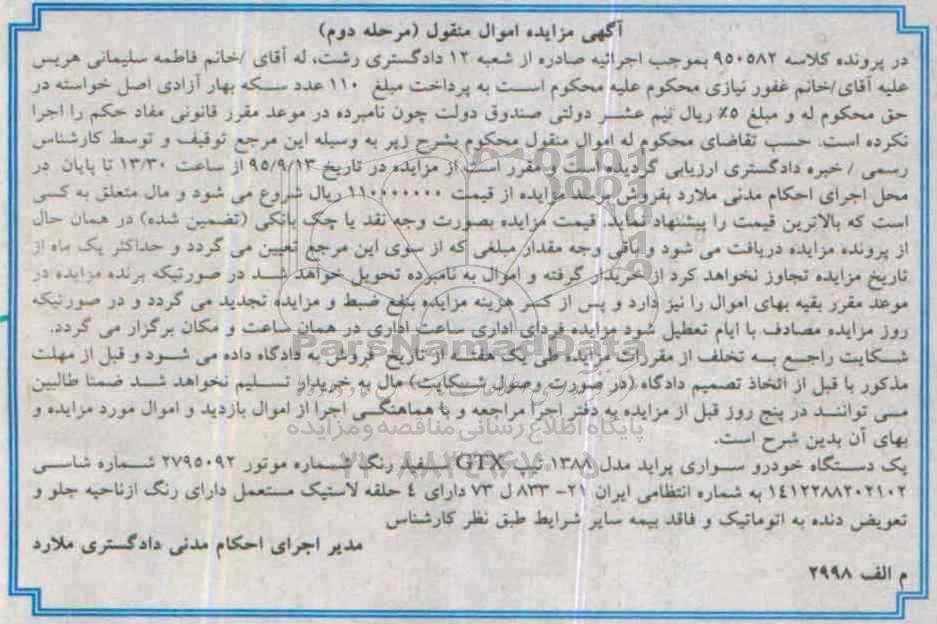 آگهی مزایده اموال منقول (مرحله دوم)
در پرونده کلاسه ۹۵۰۵۸۲ بموجب اجرائیه صادره از شعبه ۱۲ دادگستری رشت، له آقای /خانم فاطمه سلیمانی هریس
علیه آقای/خانم غفور نیازی محکوم علیه محکوم است به پرداخت مبلغ ۱۱۰ عدد سکه بهار آزادی اصل خواسته در
حق محکوم له و مبلغ ۵٪ ریال نیم عشر دولتی صندوق دولت چون نامبرده در موعد مقرر قانونی مفاد حکم را اجرا
نکرده است. حسب تقاضای محکوم له اموال منقول محکوم بشرح زیر به وسیله این مرجع توقیف و توسط کارشناس
رسمی / خبره دادگستری ارزیابی گردیده است و مقرر است از مزایده در تاریخ ۹۵/۹/۱۳ از ساعت ۱۳/۳۰ تا پایان در
محل اجرای احکام مدنی ملارد بفروش برسد مزایده از قیمت ۱۱۰۰۰۰۰۰۰ ریال شروع می شود و مال متعلق به کسی
است که بالاترین قیمت را پیشنهاد نماید. قیمت مزایده بصورت وجه نقد یا چک بانکی (تضمین شده) در همان حال
از پرونده مزایده دریافت می شود و باقی وجه مقدار مبلغی که از سوی این مرجع تعیین می گردد و حداکثر یک ماه از
تاریخ مزایده تجاوز نخواهد کرد از خریدار گرفته و اموال به نامبرده تحویل خواهد شد در صورتیکه برنده مزایده در
موعد مقرر بقیه بهای اموال را نیز دارد و پس از کسر هزینه مزایده بنفع ضبط و مزایده تجدید می گردد و در صورتیکه
روز مزایده مصادف با ایام تعطیل شود مزایده فردای اداری ساعت اداری در همان ساعت و مکان برگزار می گردد.
شکایت راجع به تخلف از مقررات مزایده طی یک هفته از تاریخ فروش به دادگاه داده می شود و قبل از مهلت
مذکور با قبل از اتخاذ تصمیم دادگاه (در صورت وصول شکایت) مال به خریدار تسلیم نخواهد شد ضمنا طالبین
می توانند در پنج روز قبل از مزایده به دفتر اجرا مراجعه و با هماهنگی اجرا از اموال بازدید و اموال مورد مزایده و
بهای آن بدین شرح است.
یک دستگاه خودرو سواری پراید مدل ۱۳۸۸ تیپ GTX سفید رنگ شماره موتور ۲۷۹۵۰۹۲ شماره شاسی
۱۴۱۲۲۸۸۲۰۲۱۰۲ به شماره انتظامی ایران ۲۱- ۸۳۳ ل ۷۳ دارای ۴ حلقه لاستیک مستعمل دارای رنگ ازناحیه جلو و
تعویض دنده به اتوماتیک و فاقد بیمه سایر شرایط طبق نظر کارشناس
مدیر اجرای احکام مدنی دادگستری ملارد
م الف ۲۹۹۸
ParsNamadData
پایگاه اطلاع رسانی مناقصه و مزایده